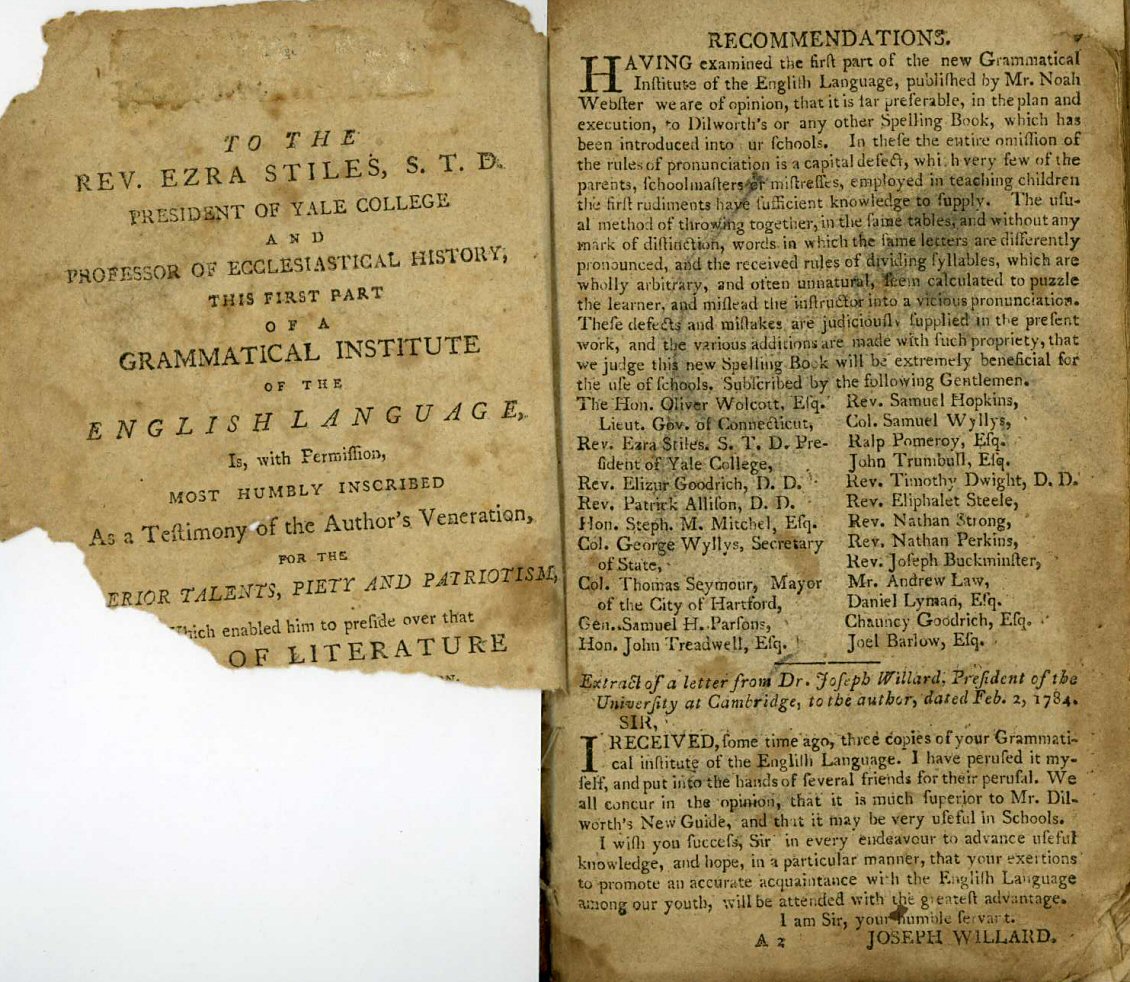 TO THE
REV. EZRA STILES, S. T. D.
PRESIDENT OF YALE COLLEGE
AND
PROFESSOR OF ECCLESIASTICAL HISTORY,
THIS FIRST PART
OF A
GRAMMATICAL INSTITUTE
OF THE
ENGLISH LANGUAGE,
Is, with Permiſſion,
MOST HUMBLY INSCRIBED
As a Teſtimony of the Author's Veneration,
FOR THE
ERIOR TALENTS, PIETY AND PATRIOTISM,
Which enabled him to preſide over that
OF LITERATURE
RECOMMENDATIONS.
HAVING examined the firſt part of the new Grammatical
Inſtitute of the Engliſh Language, publiſhed by Mr. Noah
Webſter we are of opinion, that it is far preferable, in the plan and
execution, to Dilworth's or any other Spelling Book, which has
been introduced into ur ſchools. In theſe the entire omiſſion of
the rules of pronunciation is a capital defect, whi h very few of the
parents, ſchoolmaſters or miſtreſſes, employed in teaching children
the firſt rudiments have ſufficient knowledge to ſupply. The uſu-
al method of throwing together, in the ſame tables, and without any
mark of diſtinction, words in which the ſame letters are differently
pronounced, and the received rules of dividing ſyllables, which are
wholly arbitrary, and often unnatural, ſeem calculated to puzzle
the learner, and miſlead the inſtructor into a vicious pronunciation.
Theſe defects and miſtakes are judiciouſly ſupplied in the preſent
work, and the various additions are made with ſuch propriety, that
we judge this new Spelling Book will be extremely beneficial for
the uſe of ſchools. Subſcribed by the following Gentlemen.
The Hon. Oliver Wolcott, Eſq.
Lieut. Gov. of Connecticut,
Rev. Ezra Stiles. S. T. D. Pre-
ſident of Yale College,
Rev. Elizur Goodrich, D. D.
Rev. Patrick Alliſon, D. D.
Hon. Steph. M. Mitchel, Eſq.
Col. George Wyllys, Secretary
of State,
Col. Thomas Seymour, Mayor
of the City of Hartford,
Gen. Samuel H. Parſons,
Hon. John Treadwell, Eſq.
Rev. Samuel Hopkins,
Col. Samuel Wyllys,
Ralp Pomeroy, Eſq.
John Trumbull, Eſq.
Rev. Timothy Dwight, D. D.
Rev. Eliphalet Steele,
Rev. Nathan Strong,
Rev. Nathan Perkins,
Rev. Joſeph Buckminſter,
Mr. Andrew Law,
Daniel Lyman, Eſq.
Chauncy Goodrich, Eſq.
Joel Barlow, Eſq.
Extract of a letter from Dr. Joſeph Willard, Preſident of the
Univerſity at Cambridge, to the author, dated Feb. 2, 1784.
SIR,
I RECEIVED, ſome time ago, three copies of your Grammati-
cal inſtitute of the Engliſh Language. I have peruſed it my-
ſelf, and put into the hands of ſeveral friends for their peruſal. We
all concur in the opinion, that it is much ſuperior to Mr. Dil-
worth's New Guide, and that it may be very uſeful in Schools.
I wiſh you ſucceſs, Sir in every endeavour to advance uſeful
knowledge, and hope, in a particular manner, that your exertions
to promote an accurate acquaintance with the Engliſh Language
among our youth, will be attended with the greateſt advantage.
I am Sir, your humble ſervant.
A 2 JOSEPH WILLARD.